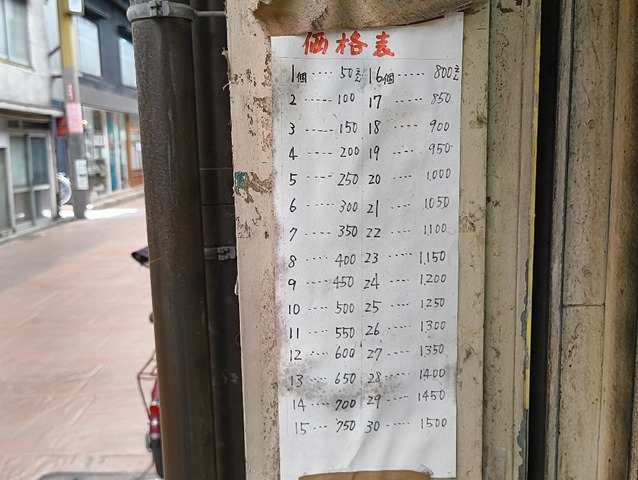 価格表
1個 ····· 50えん 16個 ···· 800えん
2 ----- 100 17 ····· 850
3 ----- 150 18 ····· 900
4 ···· 200 19 ···· 950
5 ····· 250 20 ···· 1,000
6 ···· 300 21 ···· 1,050
7 ···· 350 22 ···· 1,100
8 ···· 400 23 ···· 1,150
9 ···· 450 24 ···· 1,200
10 ···· 500 25 ···· 1250
11 ···· 550 26 ····· 1300
12 ···· 600 27 ···· 1350
13 ···· 650 28 ···· 1400
14 ···· 700 29 ···· 1450
15 ···· 750 30 ···· 1500